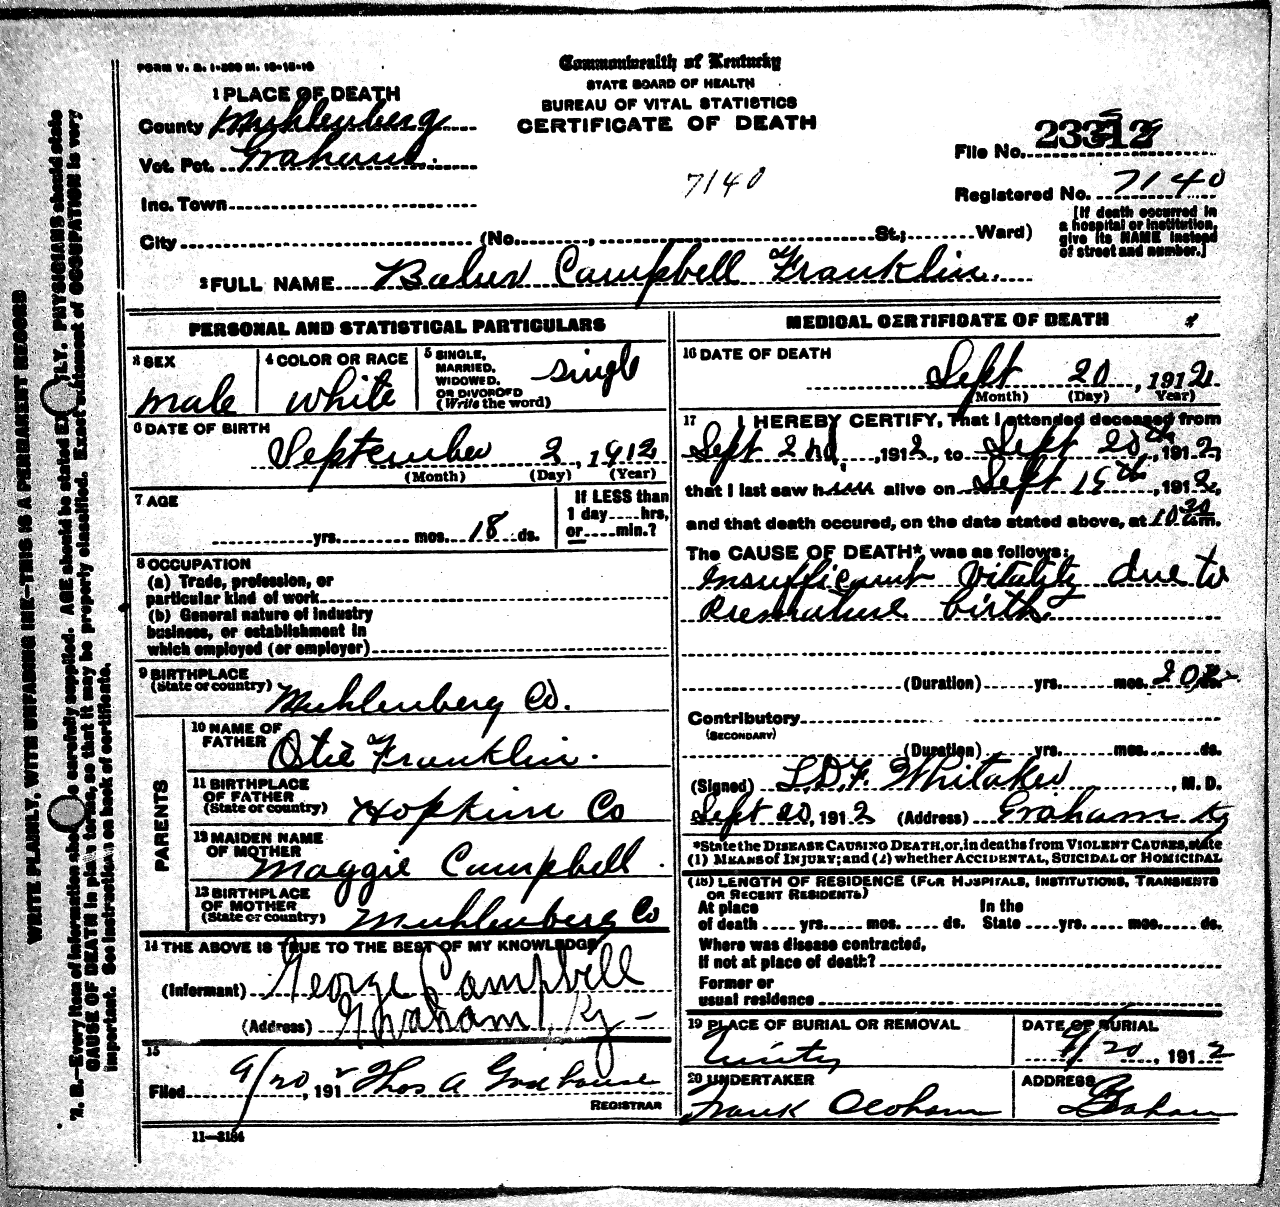 FORM V. S. 1-500 M. 10-15-10
Commonwealth of Kentucky
STATE BOARD OF HEALTH
BUREAU OF VITAL STATISTICS
CERTIFICATE OF DEATH
1 PLACE OF DEATH
County Muhlenberg
Vot. Pct. Graham.
Inc. Town
City (No. , St.; Ward)
7140
File No.
Registered No. 7140
[If death occurred in
a hospital or institution,
give its NAME instead
of street and number.]
2 FULL NAME Campbell Franklin.
PERSONAL AND STATISTICAL PARTICULARS
3 SEX
male
4 COLOR OR RACE
white
5 SINGLE,
MARRIED,
WIDOWED,
OR DIVORCED
(Write the word)
single
6 DATE OF BIRTH
September 2, 1912
(Month) (Day) (Year)
7 AGE
yrs. mos. 18 ds.
If LESS than
1 day....hrs,
or....min.?
8 OCCUPATION
(a) Trade, profession, or
particular kind of work
(b) General nature of industry
business, or establishment in
which employed (or employer)
9 BIRTHPLACE
(State or country) Muhlenberg Co.
PARENTS
10 NAME OF
FATHER Otie Franklin.
11 BIRTHPLACE
OF FATHER
(State or country) Hopkins Co
12 MAIDEN NAME
OF MOTHER
Maggie Campbell.
13 BIRTHPLACE
OF MOTHER
(State or country) Muhlenberg Co
14 THE ABOVE IS TRUE TO THE BEST OF MY KNOWLEDGE
(Informant) George Campbell
(Address) Graham, Ky-
15
Filed 9/20, 1912 Thos A
REGISTRAR
11—3184
MEDICAL CERTIFICATE OF DEATH
16 DATE OF DEATH
Sept 20, 1912
(Month) (Day) Year)
17 I HEREBY CERTIFY, That I attended deceased from
Sept 2nd, 1912, to Sept 20th, 1912,
that I last saw h alive on Sept 19th, 1912,
and that death occured, on the date stated above, at 10 m.
The CAUSE OF DEATH* was as follows:
Insufficient Vitality due to
Premature birth.
(Duration) yrs. mos. 20 ds.
Contributory
(SECONDARY)
(Duration) yrs. mos. ds.
(Signed) L.D.F. Whitaker, M. D.
Sept 20, 1912 (Address) Graham Ky
*State the DISEASE CAUSING DEATH, or, in deaths from VIOLENT CAUSES, state
(1) MEANS of INJURY; and (2) whether ACCIDENTAL, SUICIDAL or HOMICIDAL
(18) LENGTH OF RESIDENCE (FOR HOSPITALS, INSTITUTIONS, TRANSIENTS
OR RECENT RESIDENTS)
At place In the
of death .... yrs. mos. ds. State yrs. mos. ds.
Where was disease contracted,
If not at place of death?
Former or
usual residence
19 PLACE OF BURIAL OR REMOVAL
Unity
DATE OF BURIAL
9/20, 1912
20 UNDERTAKER
Frank
ADDRESS
Graham
WRITE PLAINLY, WITH UNFADING INK—THIS IS A PERMANENT RECORD
N. B.—Every item of information should be carefully supplied. AGE should be stated EXACTLY. PHYSICIANS should state
CAUSE OF DEATH in plain terms, so that it may be properly classified. Exact statement of OCCUPATION is very
important. See instructions on back of certificate.